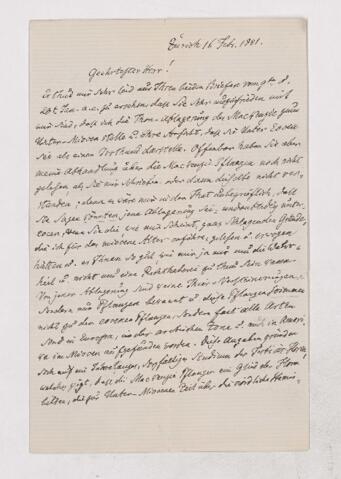 Zürich 16 Feb. 1881.
Geehrtester Herr!
Es thut mir sehr leid aus Ihren beiden Briefen vom 9t. &
20t. Jan. a. c. zu ersehen, dass Sie sehr unzufrieden mit
mir sind, dass ich die Thon-Ablagerung des Mackenzie zum
Unter-Miocen stelle & ihre Ansicht, dass sie Unter Eocen
sei als einen Irrthum darstelle. Offenbar haben Sie aber
meine Abhandlung über die Mackenzie Pflanzen noch nicht
gelesen als Sie mir schrieben oder dann dieselbe nicht ver-
standen; denn es wäre mir in der That unbegreiflich, dass
Sie sagen könnten jene Ablagerung sei undoubtedly unter
eocen, wenn Sie die, wie mir scheint, ganz schlagenden Gründe,
die ich für das miocene Alter anführe, gelesen & erwogen
hätten &. es Ihnen so gut wie mir ja nur um die Wahr-
heit & nicht um eine Rechthaberei zu thun sein kann
Von jener Ablagerung sind keine Thier-Versteinerungen,
sondern nur Pflanzen bekannt & diese Pflanzen stimmen
nicht zu den eocenen Pflanzen, sondern fast alle Arten
sind in Europa, in der arctischen Zone & auch in Ameri-
ka im Miocen aufgefunden worden. Diese Angaben gründen
sich auf ein Jahrelanges, sorgfältiges Studium der Tertiär Flora,
welches zeigt, dass die Mackenzie Pflanzen ein Glied der Flora
bilden, die zur Unter-Miocenen Zeit über die nördliche Hemis-